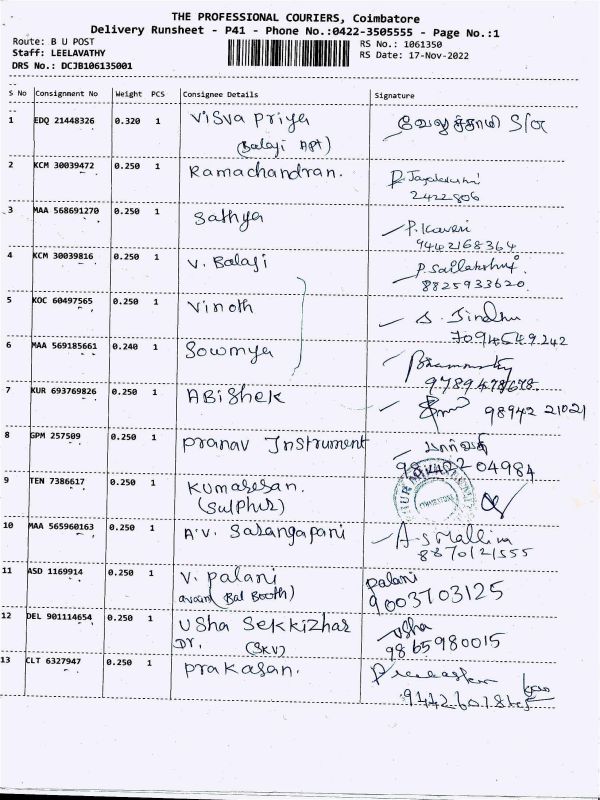 THE PROFESSIONAL COURIERS, Coimbatore
Delivery Runsheet - P41 - Phone No.:0422-3505555 - Page No.:1
Route: B U POST
RS No.: 1061350
Staff: LEELAVATHY
RS Date: 17-Nov-2022
DRS No.: DCJB106135001
S No Consignment No Weight PCS Consignee Details Signature
1 EDQ 21448326 0.320 1 Visva Priya வேலுச்சாமி S/o
(Balaji Apt)
2 KCM 30039472 0.250 1 Ramachandran.
2422806
3 MAA 568691270 0.250 1 Sathya P. Kaveri
9442168364
4 KCM 30039816 0.250 1 V. Balaji
8825933620
5 KOC 60497565 0.250 1 Vinoth S. Sindhu
7094549242
6 MAA 569185661 0.240 1 Sowmya
9789478678
7 KUR 693769826 0.250 1 Abishek 98942 21021
8 GPM 257509 0.250 1 Pranav Instrument பார்வதி
98422 04984
9 TEN 7386617 0.250 1 Kumaresan.
(Sulphur)
10 MAA 565960163 0.250 1 A.V. Sarangapani A.S Mallika
8870121555
11 ASD 1169914 0.250 1 V. Palani Palani
(Bal Booth) 9003703125
12 DEL 901114654 0.250 1 Usha Sekkizhar Usha
Dr. (SKV) 9865980015
13 CLT 6327947 0.250 1 Prakasan.